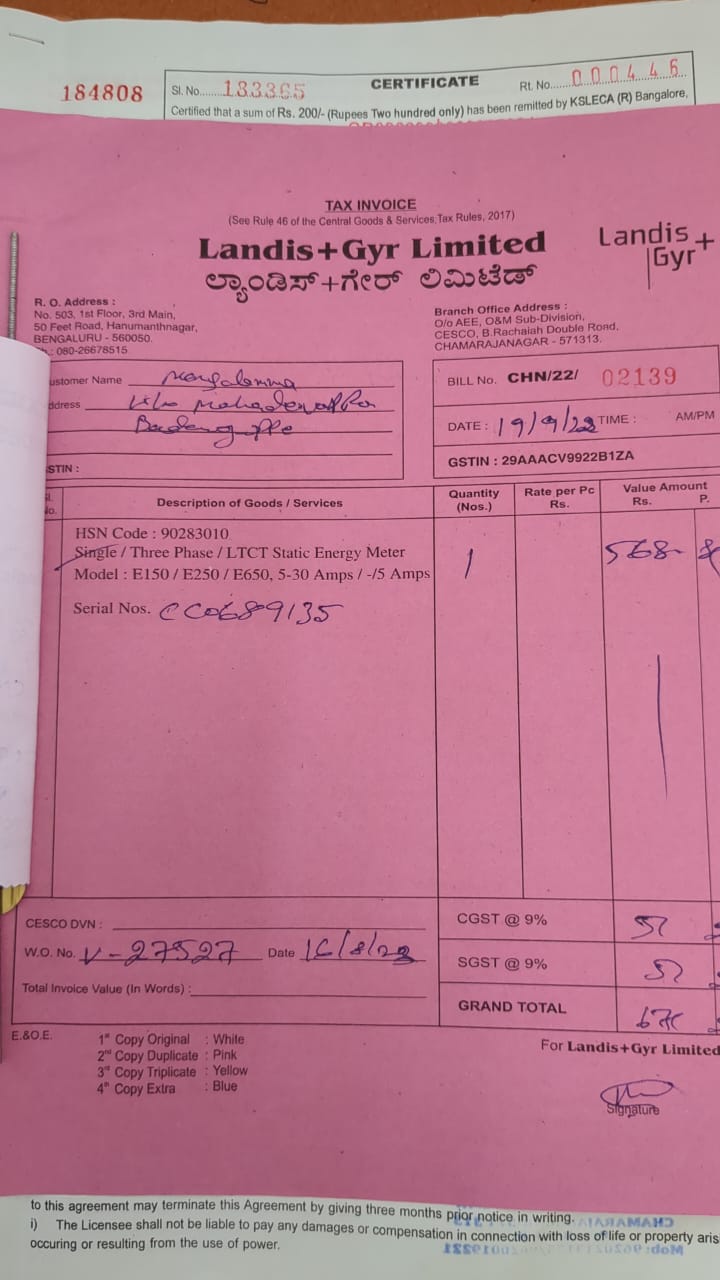 184808
Sl. No.......133365 CERTIFICATE Rt. No.......000446
Certified that a sum of Rs. 200/- (Rupees Two hundred only) has been remitted by KSLECA (R) Bangalore,
TAX INVOICE
(See Rule 46 of the Central Goods & Services Tax Rules, 2017)
Landis+Gyr Limited
Landis+
Gyr
ಲ್ಯಾಂಡಿಸ್+ಗೇರ್ ಲಿಮಿಟೆಡ್
R. O. Address :
No. 503, 1st Floor, 3rd Main,
50 Feet Road, Hanumanthnagar,
BENGALURU - 560050.
: 080-26678515
Branch Office Address :
O/o AEE, O&M Sub-Division,
CESCO, B.Rachaiah Double Road,
CHAMARAJANAGAR - 571313.
ustomer Name Mangalamma
ddress
STIN :
BILL No. CHN/22/ 02139
DATE : 19/9/22 TIME : AM/PM
GSTIN : 29AAACV9922B1ZA
l. No. Description of Goods / Services Quantity (Nos.) Rate per Pc Rs. Value Amount Rs. P.
HSN Code : 90283010
Single / Three Phase / LTCT Static Energy Meter 1 568-
Model : E150 / E250 / E650, 5-30 Amps / -/5 Amps
Serial Nos. CC0689135
CESCO DVN :
W.O. No. V-27527 Date 16/8/22
Total Invoice Value (In Words) :
CGST @ 9% 51
SGST @ 9% 51
GRAND TOTAL
E.&O.E.
1st Copy Original : White
2nd Copy Duplicate : Pink
3rd Copy Triplicate : Yellow
4th Copy Extra : Blue
For Landis+Gyr Limited
Signature
to this agreement may terminate this Agreement by giving three months prior notice in writing.
i) The Licensee shall not be liable to pay any damages or compensation in connection with loss of life or property aris
occuring or resulting from the use of power.